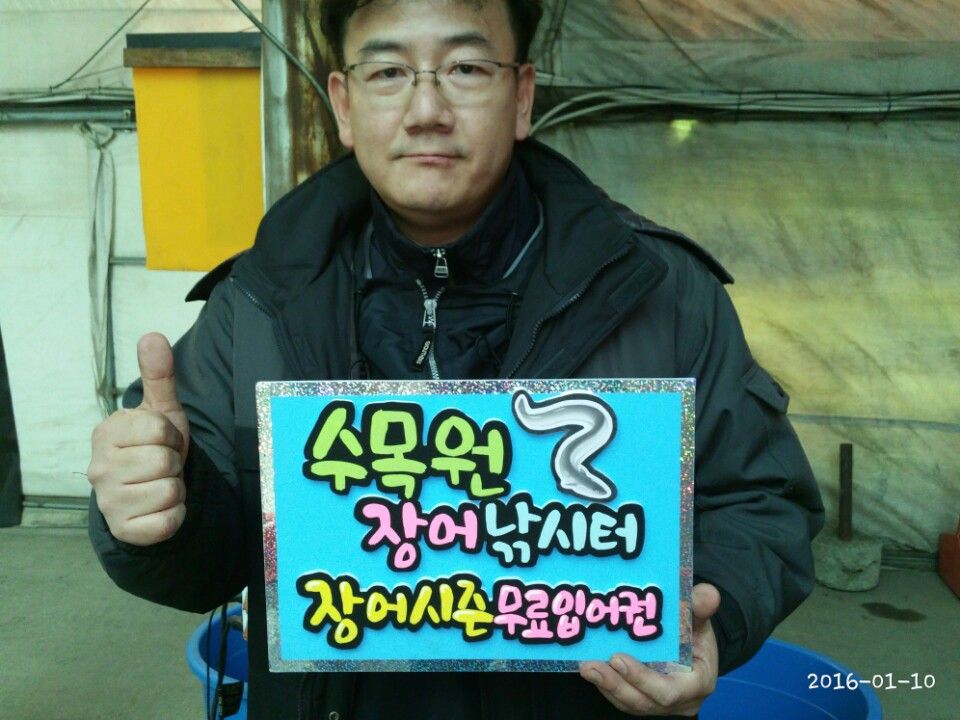 수목원
장어낚시터
장어시즌무료입어권
2016-01-10